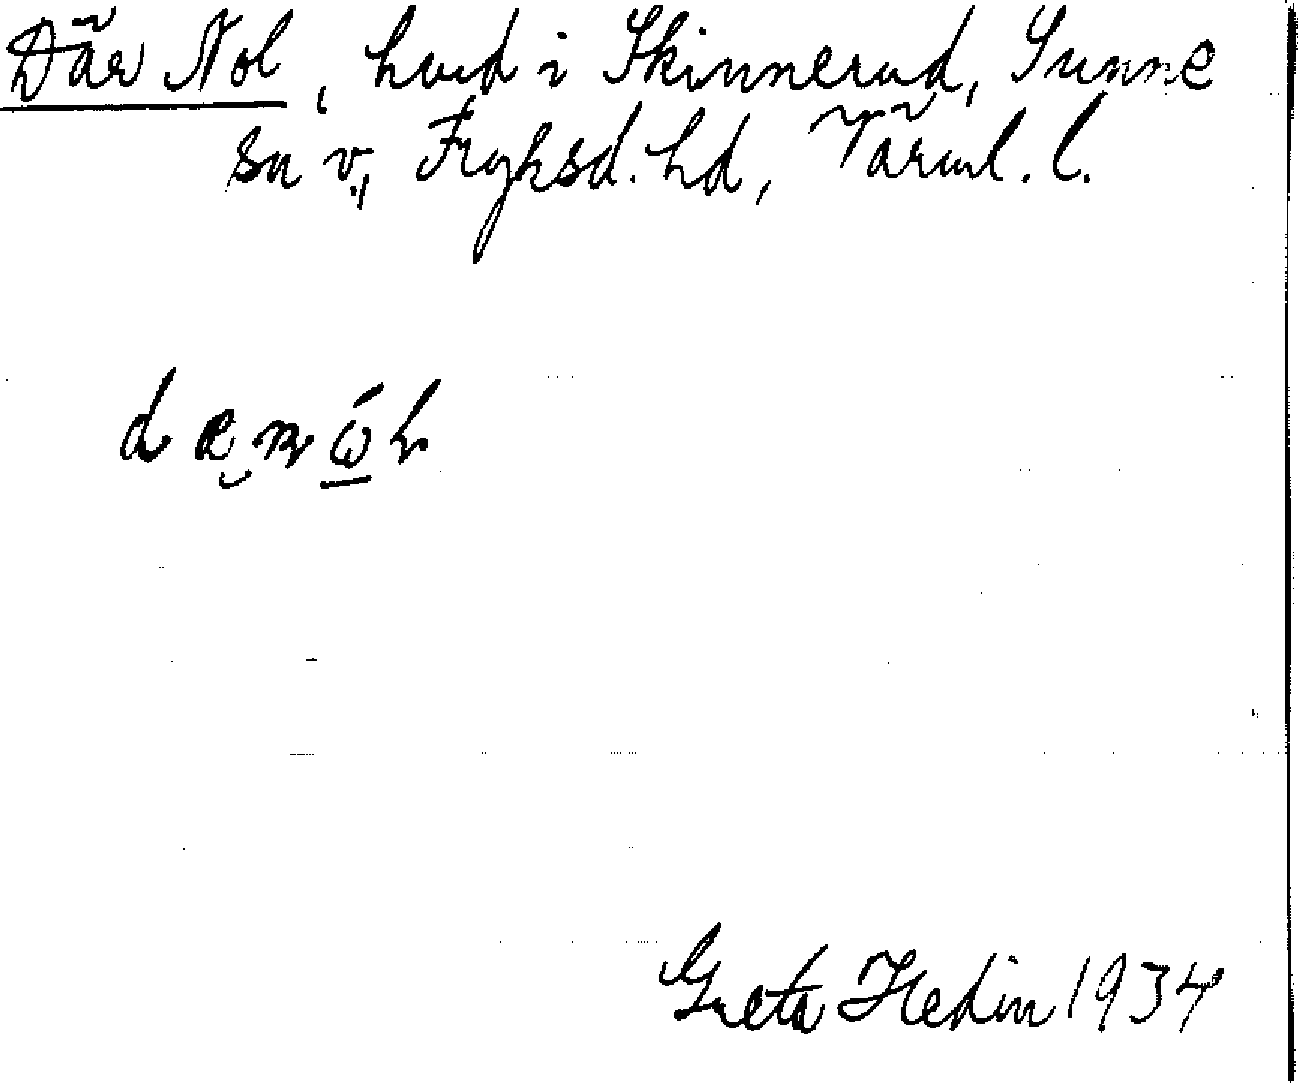 Där Nol, hvd i Skinnerud, Sunne
sn v., Fryksd. hd, Värml. l.
Greta Hedin 1934